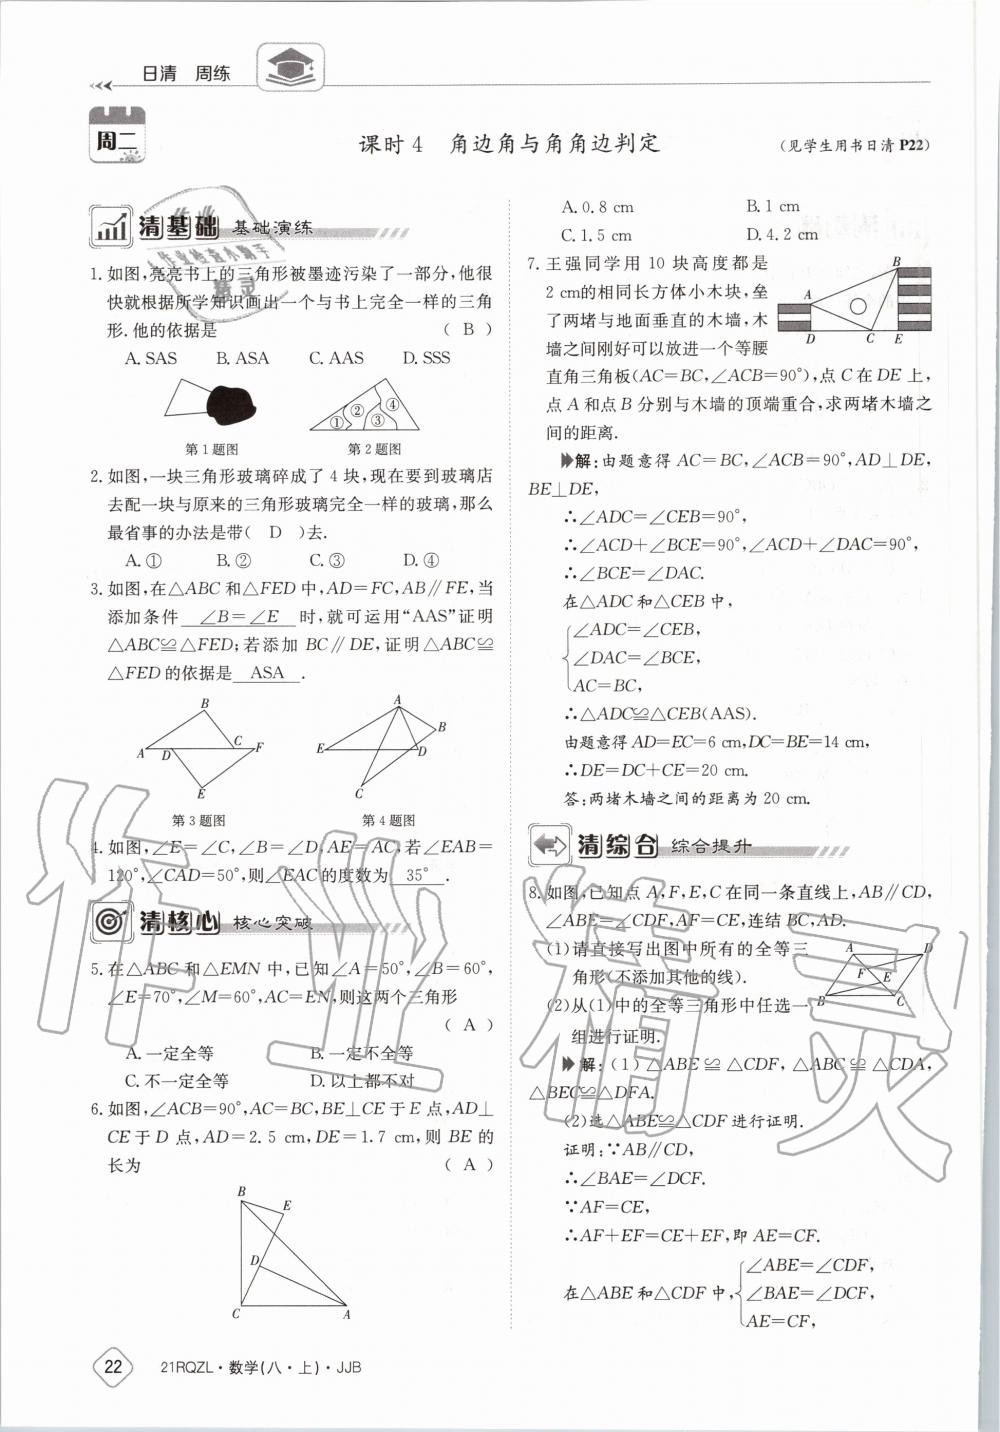 日清 周练
周二
课时4 角边角与角角边判定
(见学生用书日清P22)
清基础 基础演练
1.如图,亮亮书上的三角形被墨迹污染了一部分,他很
快就根据所学知识画出一个与书上完全一样的三角
形.他的依据是 ( B )
A. SAS B. ASA C. AAS D. SSS
① ② ③ ④
第1题图 第2题图
2.如图,一块三角形玻璃碎成了4块,现在要到玻璃店
去配一块与原来的三角形玻璃完全一样的玻璃,那么
最省事的办法是带( D )去.
A.① B.② C.③ D.④
3.如图,在△ABC和△FED中,AD=FC,AB∥FE,当
添加条件 ∠B=∠E 时,就可运用“AAS”证明
△ABC≌△FED;若添加 BC∥DE,证明△ABC≌
△FED的依据是 ASA .
A B C D E F
A B C D E
第3题图 第4题图
4.如图,∠E=∠C,∠B=∠D,AE=AC,若∠EAB=
120°,∠CAD=50°,则∠EAC的度数为 35° .
清核心 核心突破
5.在△ABC和△EMN中,已知∠A=50°,∠B=60°,
∠E=70°,∠M=60°,AC=EN,则这两个三角形
( A )
A.一定全等 B.一定不全等
C.不一定全等 D.以上都不对
6.如图,∠ACB=90°,AC=BC,BE⊥CE于E点,AD⊥
CE于D点,AD=2.5 cm,DE=1.7 cm,则BE的
长为 ( A )
B E D C A
A. 0.8 cm B. 1 cm
C. 1.5 cm D. 4.2 cm
7.王强同学用10块高度都是
2 cm的相同长方体小木块,垒
了两堵与地面垂直的木墙,木
墙之间刚好可以放进一个等腰
直角三角板(AC=BC,∠ACB=90°),点C在DE上,
点A和点B分别与木墙的顶端重合,求两堵木墙之
间的距离.
A B D C E
解:由题意得AC=BC,∠ACB=90°,AD⊥DE,
BE⊥DE,
∴∠ADC=∠CEB=90°,
∴∠ACD+∠BCE=90°,∠ACD+∠DAC=90°,
∴∠BCE=∠DAC.
在△ADC和△CEB中,
∠ADC=∠CEB,
∠DAC=∠BCE,
AC=BC,
∴△ADC≌△CEB(AAS).
由题意得AD=EC=6 cm,DC=BE=14 cm,
∴DE=DC+CE=20 cm.
答:两堵木墙之间的距离为20 cm.
清综合 综合提升
8.如图,已知点A,F,E,C在同一条直线上,AB∥CD,
∠ABE=∠CDF,AF=CE,连结BC,AD.
(1)请直接写出图中所有的全等三
角形(不添加其他的线).
(2)从(1)中的全等三角形中任选一
组进行证明.
A D F E B C
解:(1)△ABE≌△CDF,△ABC≌△CDA,
△BEC≌△DFA.
(2)选△ABE≌△CDF进行证明.
证明:∵AB∥CD,
∴∠BAE=∠DCF.
∵AF=CE,
∴AF+EF=CE+EF,即AE=CF.
在△ABE和△CDF中,
∠ABE=∠CDF,
∠BAE=∠DCF,
AE=CF,
22 21RQZL·数学(八·上)·JJB
作业精灵